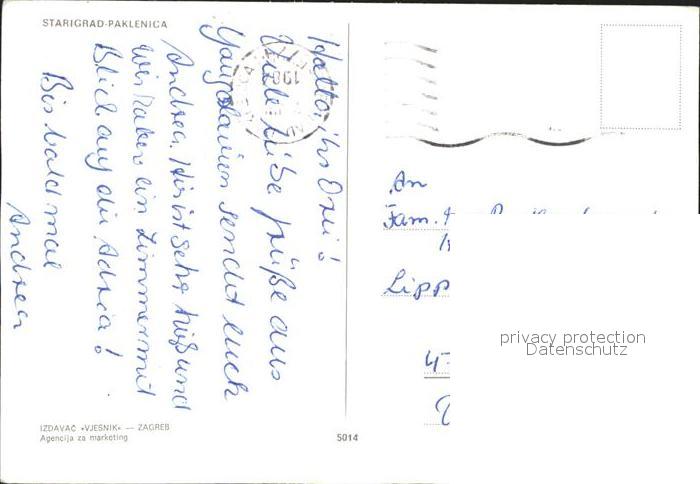 STARIGRAD-PAKLENICA
Hallo, ihr Drei!
Viele liebe Grüße aus
Yougoslavien sendet euch
Andrea. Hier ist sehr heiß und
wir haben ein Zimmer mit
Blick auf die Adria!
Bis bald mal
Andrea
An
Fam.
Lipp
privacy protection
Datenschutz
IZDAVAČ «VJESNIK» — ZAGREB
Agencija za marketing
5014